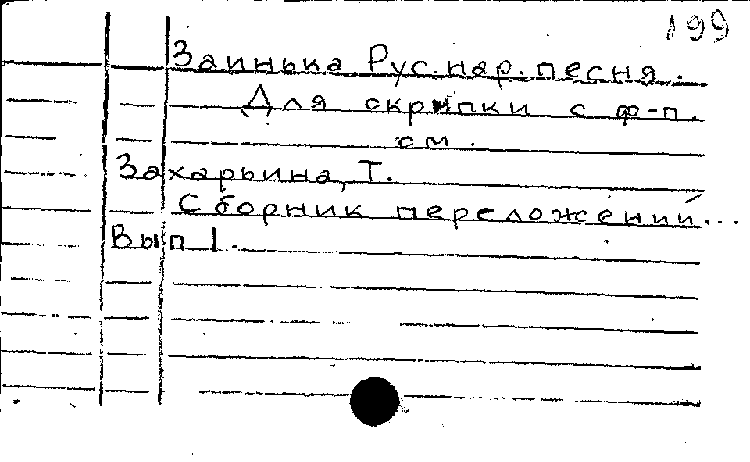 199
Заинька Рус.нар.песня.
Для скрипки с ф-п.
см.
Захарьина, Т.
Сборник переложений...
Вып 1.